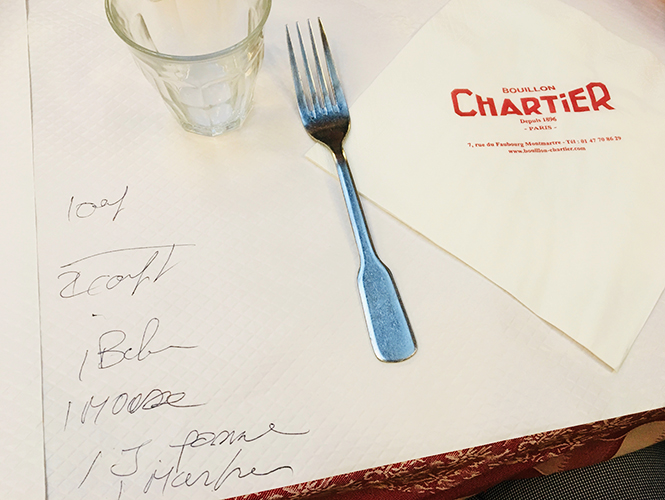 BOUILLON
CHARTIER
Depuis 1896
- PARIS -
7, rue du Faubourg Montmartre - Tél : 01 47 70 86 29
www.bouillon-chartier.com
1 oeuf
2 confit
1
1 Mousse
1 J pomme
1